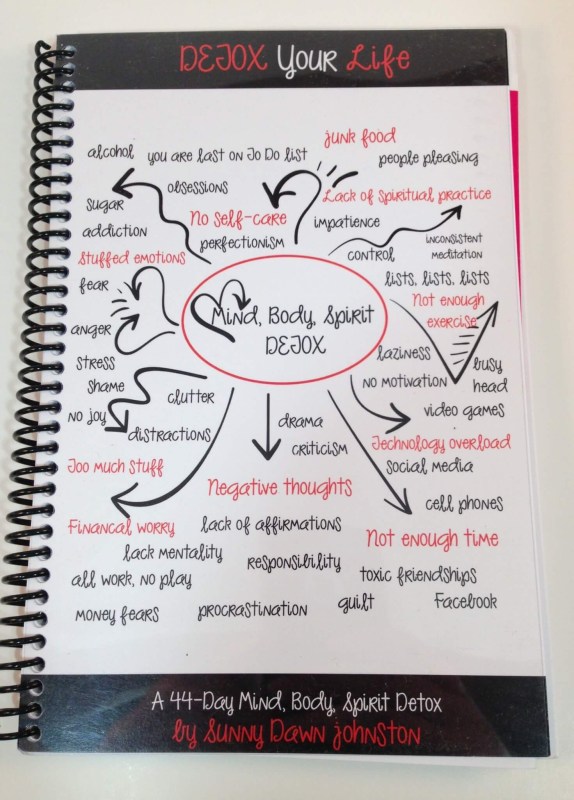 DETOX Your Life
junk food
alcohol
you are last on To Do list
people pleasing
obsessions
Lack of spiritual practice
sugar
No self-care
impatience
addiction
perfectionism
control
inconsistent
meditation
stuffed emotions
fear
lists, lists, lists
Not enough
exercise
Mind, Body, Spirit
DETOX
anger
laziness
stress
busy
head
shame
no motivation
clutter
video games
no joy
distractions
drama
criticism
Technology overload
social media
Too much stuff
Negative thoughts
cell phones
Financal worry
lack of affirmations
Not enough time
lack mentality
responsibility
all work, no play
toxic friendships
money fears
procrastination
guilt
Facebook
A 44-Day Mind, Body, Spirit Detox
by Sunny Dawn Johnston